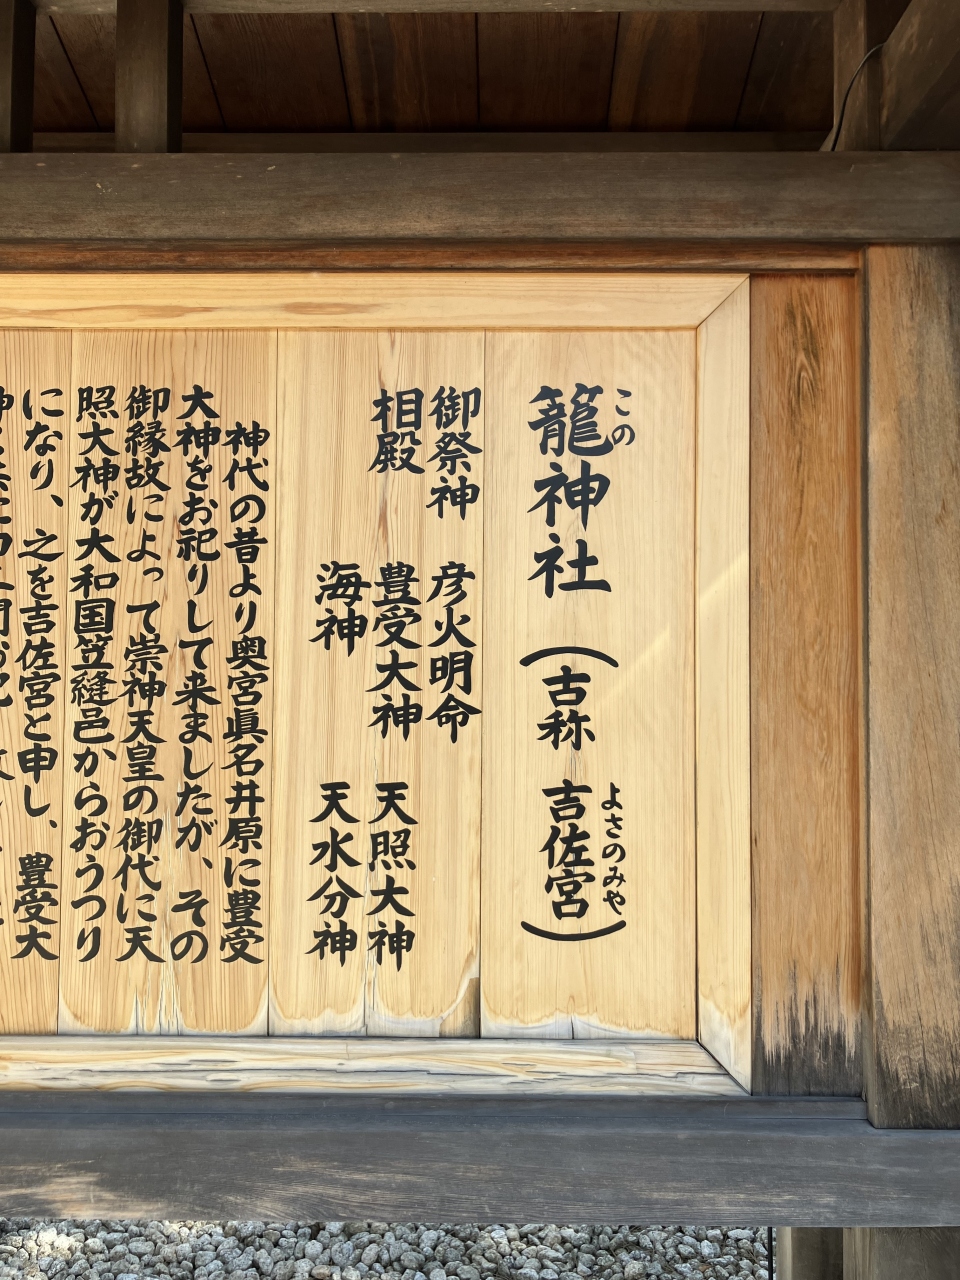 籠神社（古称 吉佐宮）
この
よさのみや
御祭神 彦火明命
相殿 豊受大神 天照大神
海神 天水分神
神代の昔より奥宮眞名井原に豊受
大神をお祀りして来ましたが、その
御縁故によって崇神天皇の御代に天
照大神が大和国笠縫邑からおうつり
になり、之を吉佐宮と申し、豊受大